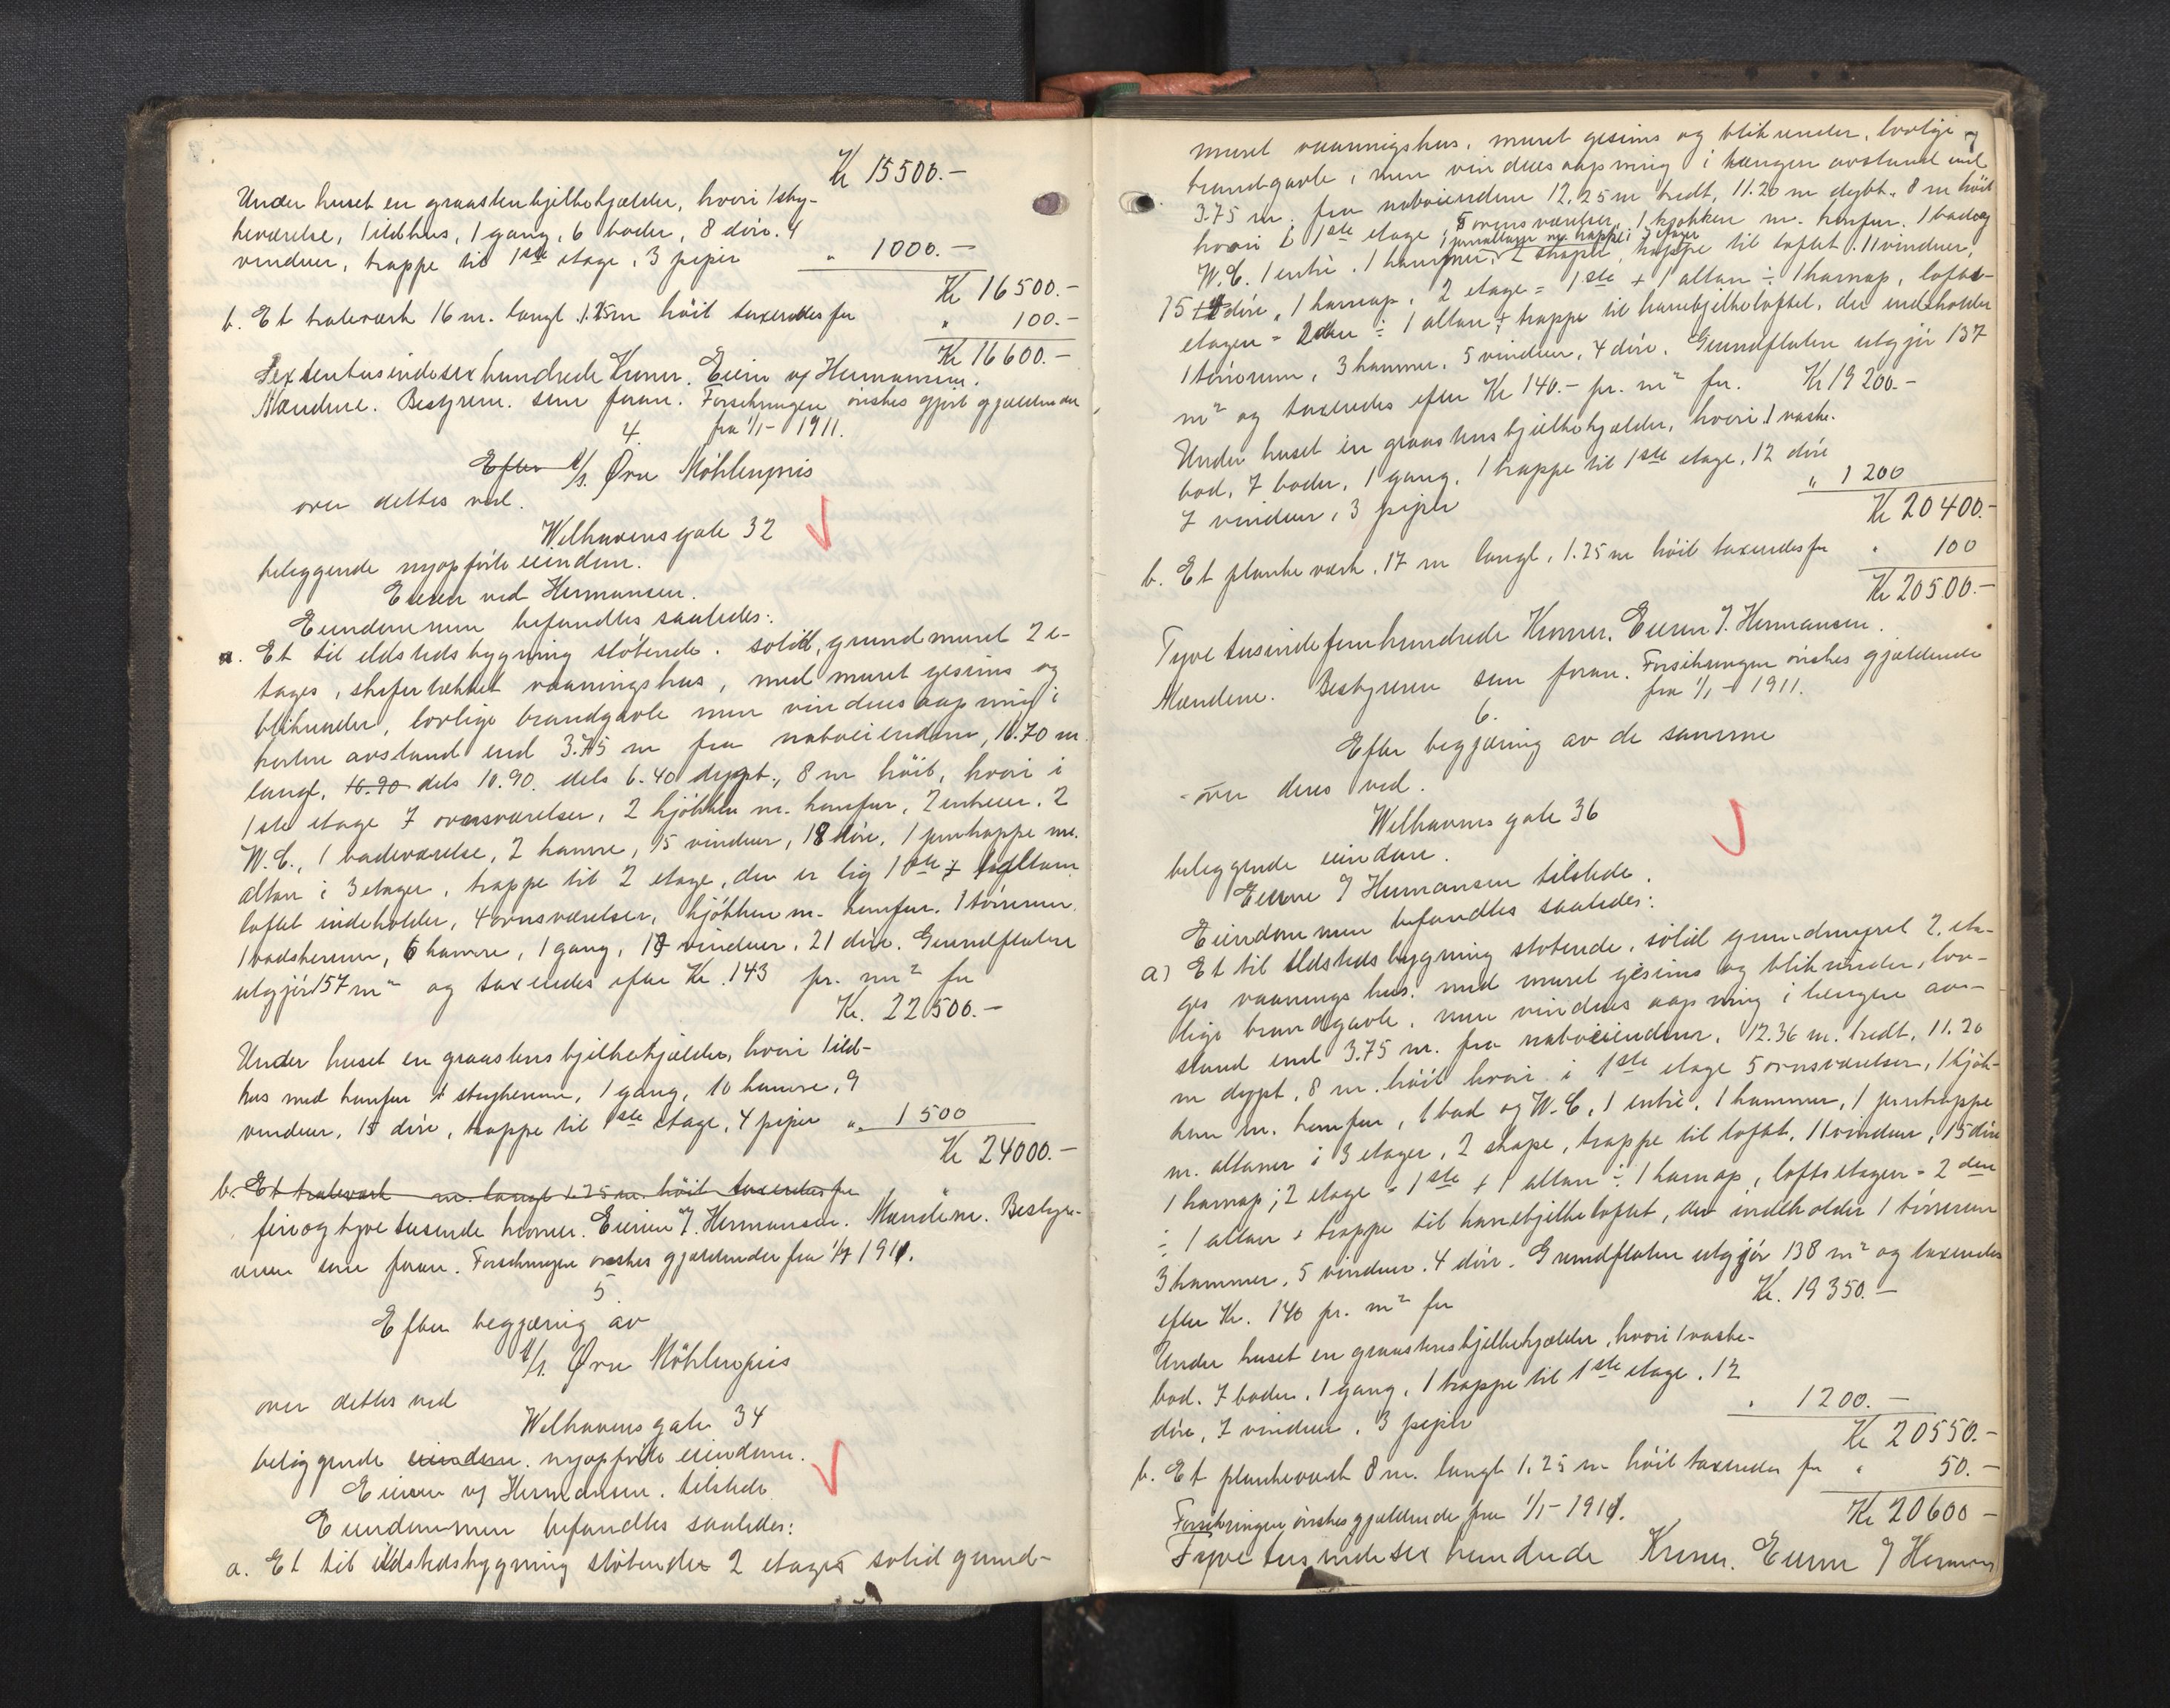 Kr 15500.-
Under huset en graastenbjelkekjælder, hvori 1 stry-
keværelse, 1 ildhus, 1 gang, 6 boder, 8 döre. 4
vinduer, trappe til 1ste etage, 3 piper " 1000.-
Kr 16500.-
b. Et trakværk 16 m. langt 1.25 m höit taxeredes for " 100.-
Kr 16600.-
Sextentusindesexhundrede Kroner. Eieren v/ Hermansen.
Mændene. Bestyreren. som foran. Forsikringen önskes gjort gjældende
fra 1/1- 1911.
4.
Efter A/S. Øvre Möhlenpris
over dettes ved.
Welhavensgate 32
beliggende nyopförte eiendom.
Eieren ved Hermansen.
Eiendommen befandtes saaledes:
a. Et til ildstedsbygning stötende. solid, grundmuret 2 e-
tages, skifertækket vaaningshus, med muret gesims og
blikrender, lovlige brandgavle men vinduesaapning i
kortere avstand end 3.75 m fra naboeiendom, 16.70 m
langt, 16.90 dels 10.90. dels 6.40 dypt., 8 m höit, hvori i
1ste etage 7 ovnsværelser, 2 kjökken m. komfur, 2 entreer. 2
W.C., 1 badeværelse, 2 kamre, 15 vinduer, 18 döre, 1 jerntrappe m.
altan i 3 etager, trappe til 2 etage, den er lig 1ste
loftet indeholder, 4 ovnsværelser, kjökken m. komfur. 1 törrerum.
1 vaskerum, 6 kamre, 1 gang, 19 vinduer. 21 döre. Grundflaten
utgjör 157 m² og taxeredes efter Kr. 143 pr. m² for
Kr. 22500.-
Under huset en graastensbjelkekjælder, hvori 1 ild-
hus med komfur 1 strykerum, 1 gang, 10 kamre, 9
vinduer, 15 döre, trappe til 1ste etage, 4 piper " 1500
Kr 24000.-
b. Et trakværk m. langt 1.25 m. höit taxeredes for "
fireogtyvetusende kroner. Eieren J. Hermansen. Mændene. Bestyre-
ren som foran. Forsikringen önskes gjældende fra 1/1 1911.
5.
Efter begjæring av
A/S. Øvre Möhlenpris
over dettes ved
Welhavens gate 34
beliggende eiendom. nyopförte eiendom.
Eieren v/ Hermansen. tilstede
Eiendommen befandtes saaledes:
a. Et til ildstedsbygning stötende 2 etages solid grund-
7
muret vaaningshus, muret gesims og blikrender, lovlige
brandgavle, men vinduesaapning i længere avstand end
3.75 m. fra naboeiendom 12,25 m bredt, 11.20 m dypt. 8 m höit
hvori i 1ste etage, 5 ovnsværelser, 1 kjökken m. komfur. 1 bad og
1 jernaltan m. trappe i 3 etager
W.C. 1 entré. 1 kammer, 2 skape, trappe til loftet. 11 vinduer,
15 döre, 1 karnap. 2 etage = 1ste + 1 altan ÷ 1 karnap, lofts-
etagen = 2den ÷ 1 altan + trappe til hanebjelkeloftet, der indeholder
1 törrerum, 3 kammer, 5 vinduer, 4 döre. Grundflaten utgjör 137
m² og taxeredes efter Kr 140.- pr. m² for. Kr 19200.-
Under huset en graastensbjelkekjælder, hvori 1 vaske-
bod, 7 boder, 1 gang, 1 trappe til 1ste etage, 12 döre
7 vinduer, 3 piper " 1200
Kr 20400.-
b. Et plankeværk, 17 m langt, 1.25 m höit taxeredes for " 100
Kr 20500.-
Tyvetusindefemhundrede Kroner. Eieren J. Hermansen.
Mændene. Bestyreren som foran. Forsikringen önskes gjældende
fra 1/1 - 1911.
6.
Efter begjæring av de samme
over deres ved.
Welhavens gate 36
beliggende eiendom.
Eierne J Hermansen tilstede.
Eiendommen befandtes saaledes:
a) Et til ildstedsbygning stötende, solid grundmuret 2. eta-
ges vaaningshus. med muret gesims og blikrender, lov-
lige brandgavle, men vindues aapning i længere av-
stand end 3.75 m. fra naboeiendom, 12.36 m. bredt, 11.20
m dypt, 8 m. höit hvori i 1ste etage 5 ovnsværelser, 1 kjök-
ken m. komfur, 1 bad og W.C, 1 entré, 1 kammer, 1 jerntrappe
m. altaner i 3 etager, 2 skape, trappe til loftet, 11 vinduer, 15 döre
1 karnap; 2 etage = 1ste + 1 altan ÷ 1 karnap, loftsetagen = 2den
÷ 1 altan + trappe til hanebjelkeloftet, der indeholder 1 törrerum
3 kammer, 5 vinduer. 4 döre. Grundflaten utgjör 138 m² og taxeredes
efter Kr. 140 pr. m² for Kr. 19350.-
Under huset en graastensbjelkekjælder, hvori 1 vaske-
bod. 7 boder. 1 gang, 1 trappe til 1ste etage. 12
döre, 7 vinduer, 3 piper " 1200.-
Kr 20550.-
b. Et plankeværk 8 m. langt 1,25 m höit taxeredes for " 50.-
Forsikringen önskes gjældende fra 1/1- 1911. Kr 20600-
Tyvetusindesexhundrede Kroner. Eieren J Hermans